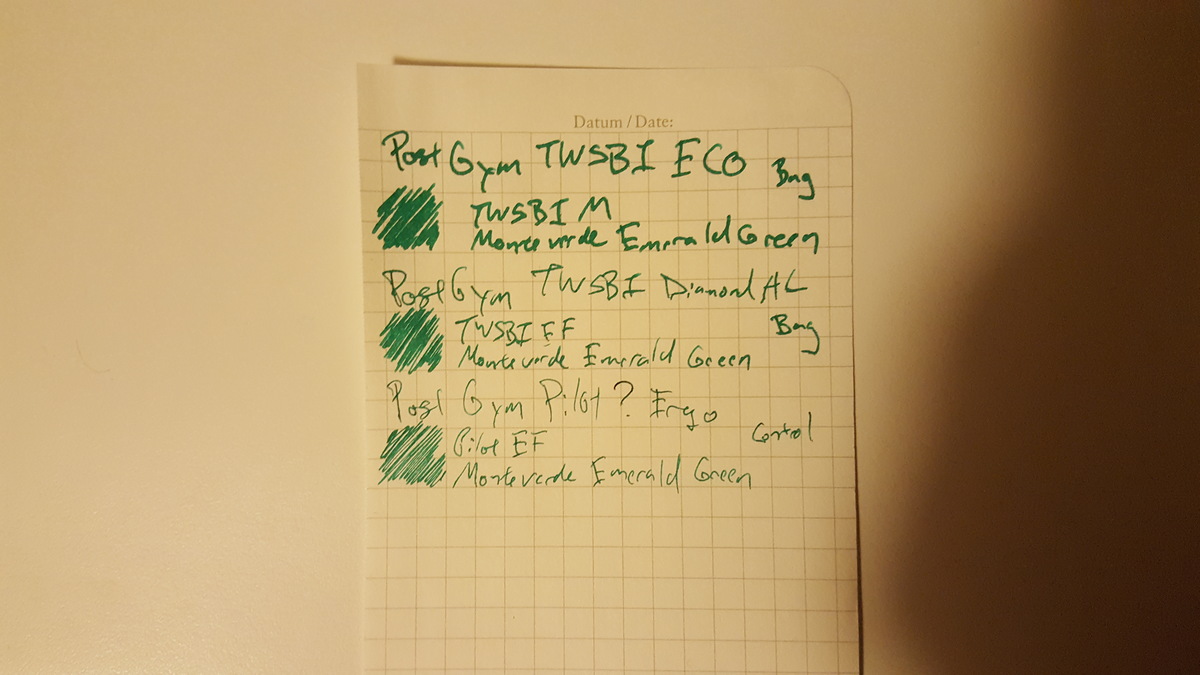 Datum / Date:
Post Gym TWSBI ECO Bag
TWSBI M
Monteverde Emerald Green
Post Gym TWSBI Diamond AL
TWSBI EF Bag
Monteverde Emerald Green
Post Gym Pilot ? Ergo
Pilot EF Control
Monteverde Emerald Green